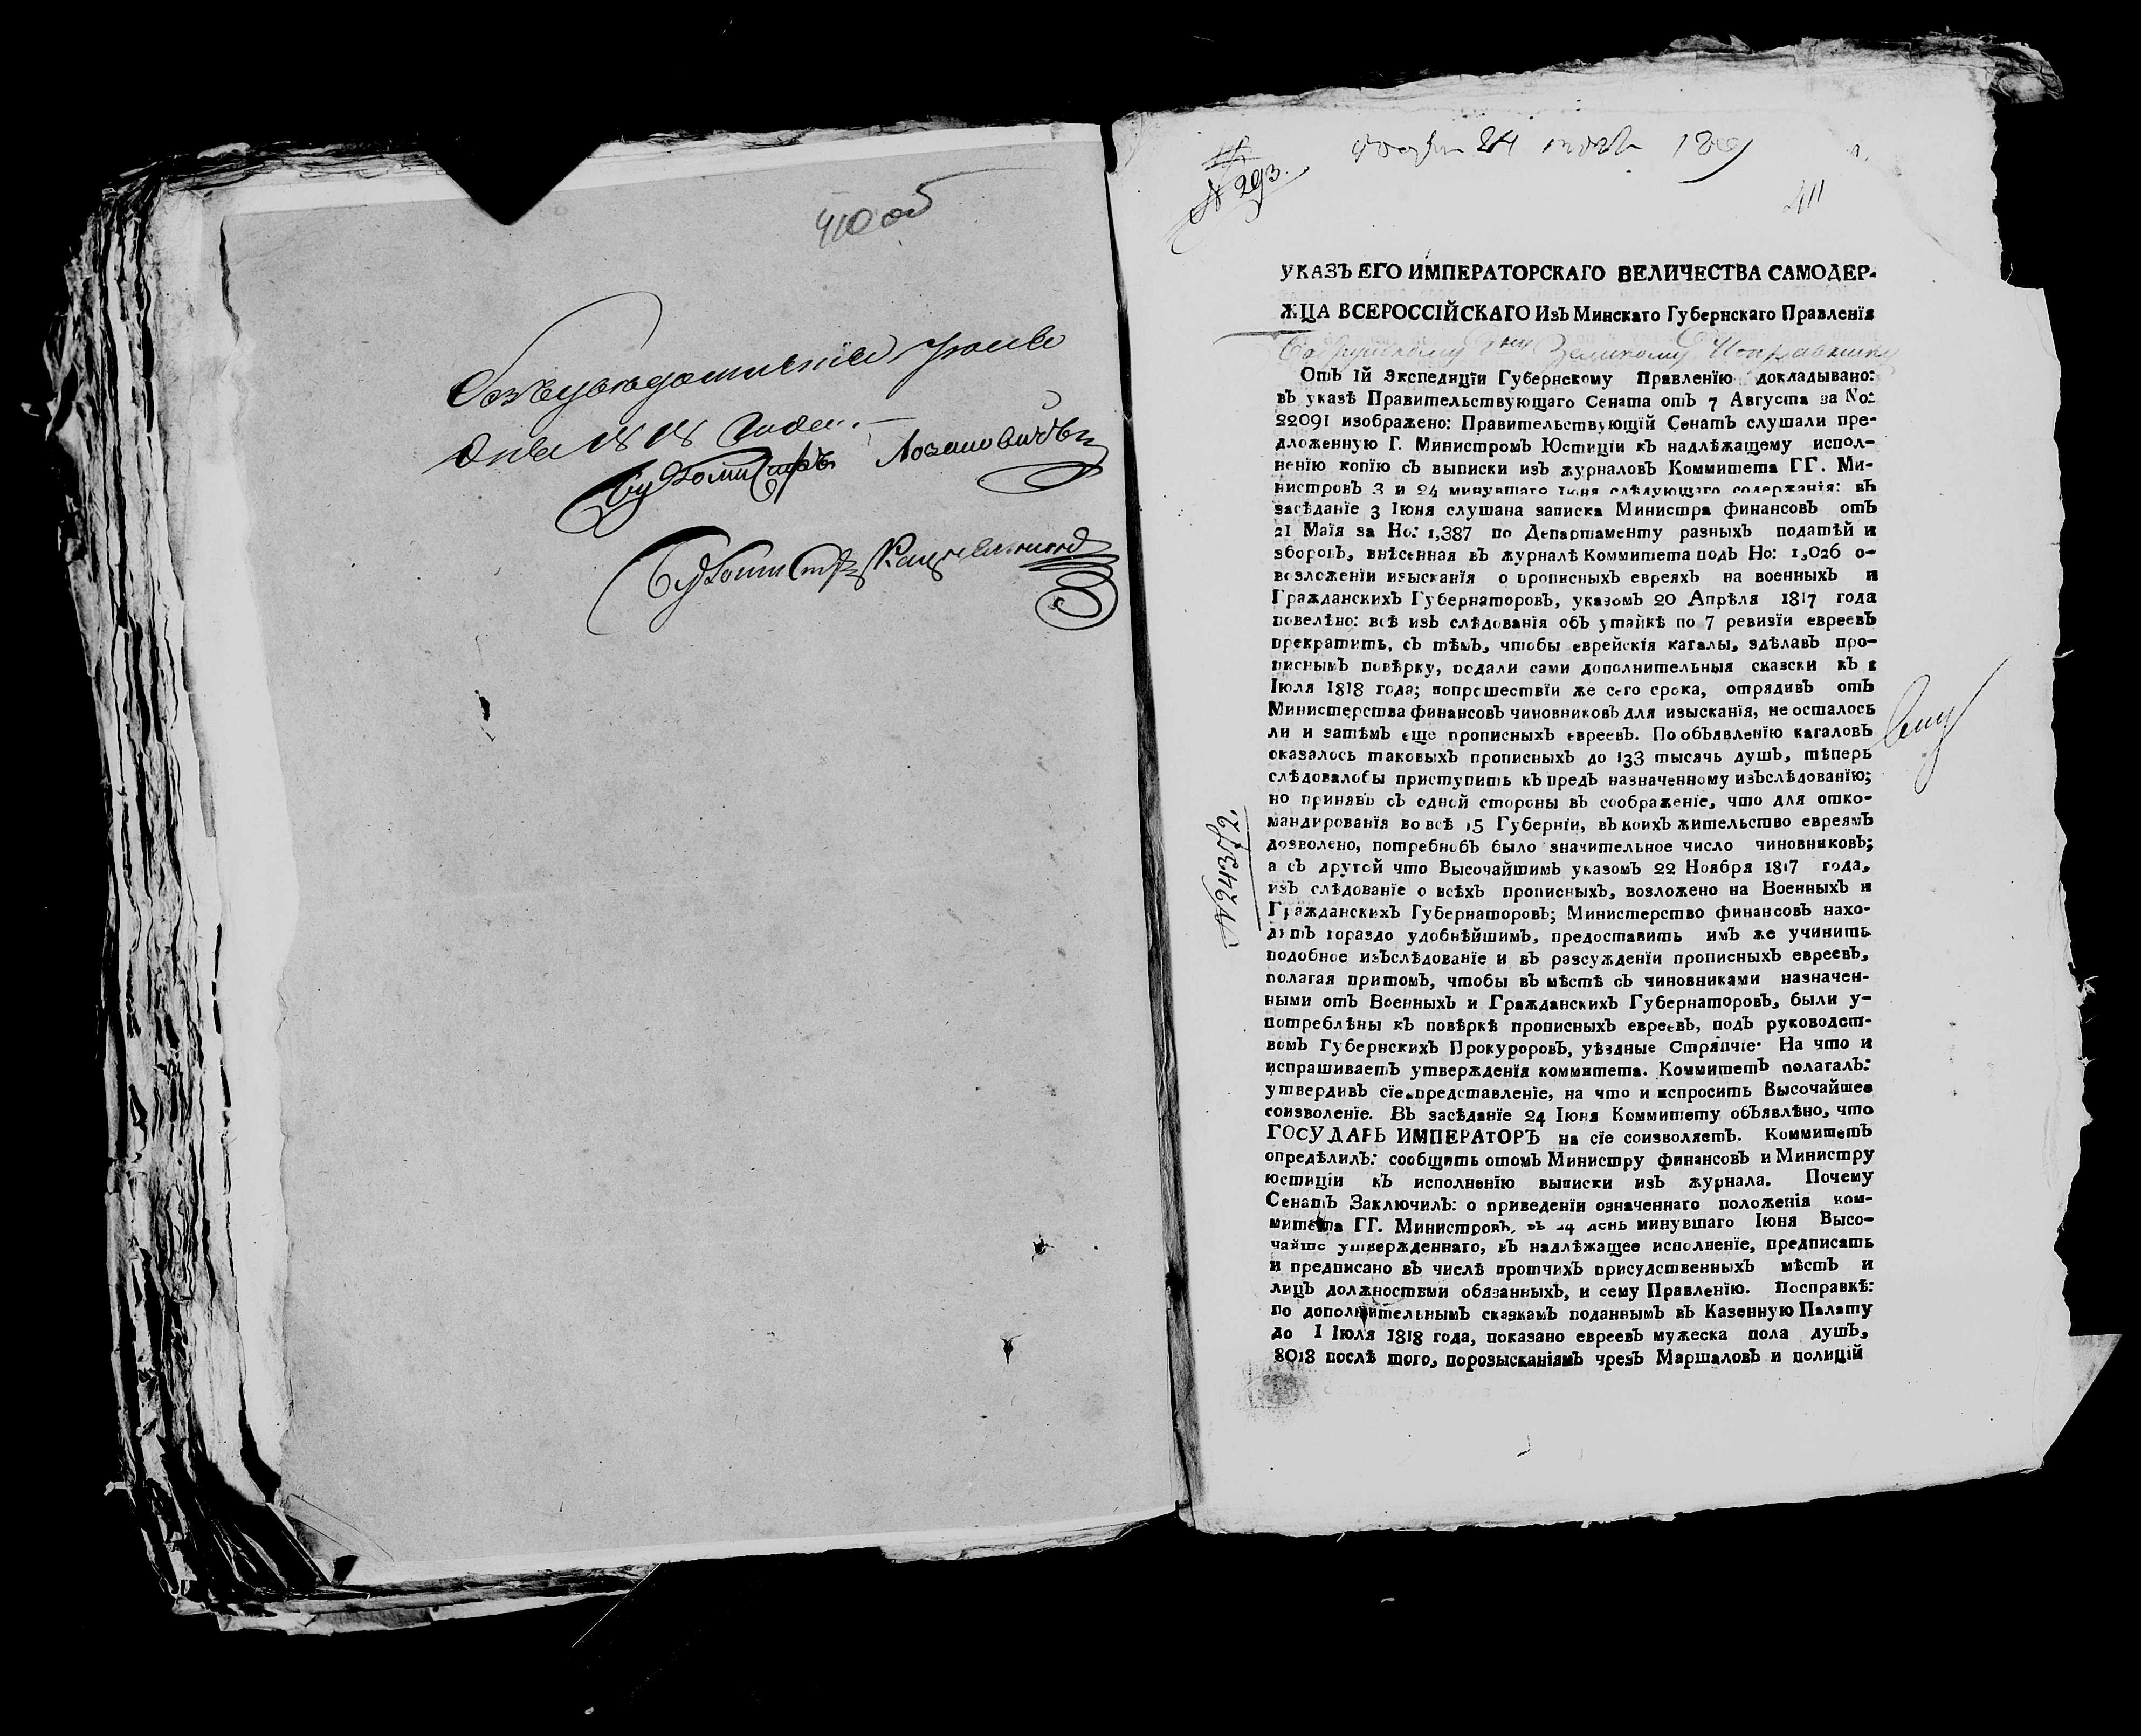 410 об
дня 1818 года.
Бургомистръ
Бургомистръ
№ 293.
24
411
УКАЗЪ ЕГО ИМПЕРАТОРСКАГО ВЕЛИЧЕСТВА САМОДЕР-
ЖЦА ВСЕРОССІЙСКАГО Изъ Минскаго Губернскаго Правленїя
Земскому Исправнику
Отъ 1й Экспедицїи Губернскому Правленїю докладывано:
въ указѣ Правительствующаго Сената отъ 7 Августа за No:
22091 изображено: Правительствующїй Сенатъ слушали пре-
дложенную Г. Министромъ Юстицїи къ надлѣжащему испол-
ненїю копїю съ выписки изъ журналовъ Коммитета ГГ. Ми-
нистровъ 3 и 24 минувшаго Іюня слѣдующаго содержанїя: въ
засѣданїе 3 Іюня слушана записка Министра финансовъ отъ
21 Маїя за No: 1,387 по Департаменту разныхъ податѣй и
зборовъ, внѣсенная въ журналѣ Коммитета подъ No: 1,026 о-
возложенїи изысканїя о прописныхъ евреяхъ на военныхъ и
Гражданскихъ Губернаторовъ, указомъ 20 Апрѣля 1817 года
повелѣно: всѣ изъ слѣдованїя объ утайкѣ по 7 ревизїи евреевъ
прекратить, съ тѣмъ, чтобы еврейскїя кагалы, здѣлавъ про-
писнымъ повѣрку, подали сами дополнительныя сказски къ 1
Іюля 1818 года; попрошествїи же сего срока, отрядивъ отъ
Министерства финансовъ чиновниковъ для изысканїя, не осталось
ли и затѣмъ еще прописныхъ евреевъ. По объявленїю кагаловъ
оказалось таковыхъ прописныхъ до 133 тысячь душъ, тѣперь
слѣдовалобы приступить къ предъ назначенному изъслѣдованїю;
но принявъ съ одной стороны въ соображенїе, что для отко-
мандированїя во всѣ 15 Губернїи, въ коихъ жительство евреямъ
дозволено, потребнобъ было значительное число чиновниковъ;
а съ другой что Высочайшимъ указомъ 22 Ноября 1817 года,
изъ слѣдованїе о всѣхъ прописныхъ, возложено на Военныхъ и
Гражданскихъ Губернаторовъ; Министерство финансовъ нахо-
дитъ гораздо удобнѣйшимъ, предоставить имъ же учинить
подобное изъслѣдованїе и въ разсужденїи прописныхъ евреевъ,
полагая притомъ, чтобы въ мѣстѣ съ чиновниками назначен-
ными отъ Военныхъ и Гражданскихъ Губернаторовъ, были у-
потреблѣны къ повѣркѣ прописныхъ евреевъ, подъ руководст-
вомъ Губернскихъ Прокуроровъ, уѣздные Стряпчїе. На что и
испрашиваетъ утвержденїя коммитета. Коммитетъ полагалъ:
утвердивъ сїе представленїе, на что и испросить Высочайшее
соизволенїе. Въ засѣданїе 24 Іюня Коммитету объявлѣно, что
ГОСУДАРЬ ИМПЕРАТОРЪ на сїе соизволяетъ. Коммитетъ
опредѣлилъ: сообщить отомъ Министру финансовъ и Министру
юстицїи къ исполненїю выписки изъ журнала. Почему
Сенатъ Заключилъ: о приведенїи означеннаго положенїя ком-
митета ГГ. Министровъ, въ 24 день минувшаго Іюня Высо-
чайше утвержденнаго, въ надлѣжащее исполненїе, предписать
и предписано въ числѣ протчихъ присудственныхъ мѣстъ и
лицъ должностьми обязанныхъ, и сему Правленїю. Посправкѣ:
по дополнительнымъ сказкамъ поданнымъ въ Казенную Палату
до 1 Іюля 1818 года, показано евреевъ мужеска пола душъ,
8018 послѣ того, порозысканїямъ чрезъ Маршаловъ и полицїй